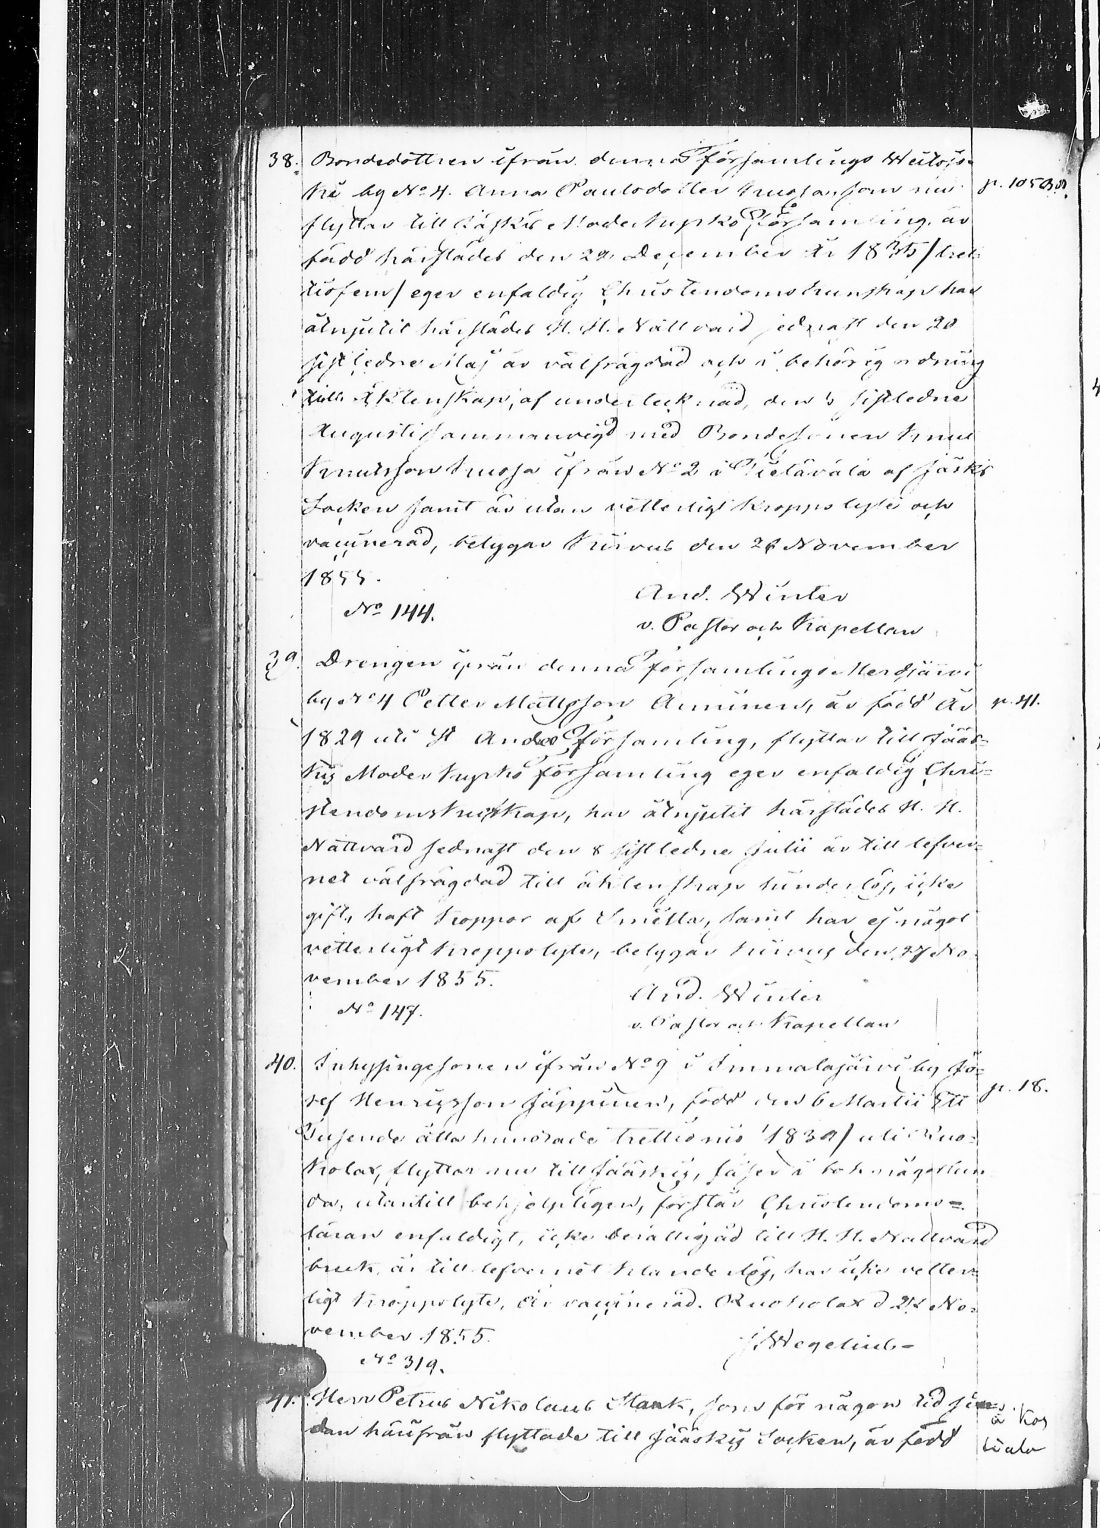 38. Bondedottren ifrån denna församlings Weitojs=
ki by No 4. Anna Paulsdotter som nu p. 105
flyttar till Jäskis Moderkyrko församling, är
född härstädes den 29 December År 1835/tret-
tiofem/ eger enfaldig Christendomskunskap har
åtnjutit härstädes H. H. Nattvard sednast den 20
sistledne Maj är välfrägdad och i behörig ordning
till Äktenskap, af undertecknad, den sistledne
Augusti sammanvigd med Bondesonen Knut
Knutsson ifrån No 2 i af Jäskis
Socken samt är utan vetterligt kroppslyte och
vaccinerad, betygar Kirvus den 26 November
1855.
No 144.
And. Winter
v. Pastor och Kapellan
39. Drengen ifrån denna församlings
by No 4 Petter Mattsson är född År p. 41.
1829 uti St Andreæ församling, flyttar till Jääs-
kis Moderkyrko församling eger enfaldig Chri=
stendomskunskap, har åtnjutit härstädes H. H.
Nattvard sednast den 8 sistledne Julii är till lefver=
net välfrägdad till äktenskap hinderlös, icke
gift, haft koppor af Smitta, samt har ej något
vetterligt kroppslyte, betygar Kirvus den 27 No-
vember 1855.
No 147.
And. Winter
v. Pastor och Kapellan
40. Inhysingesonen ifrån No 9 i Immolajärvi by Jo=
sef Henricsson Jäppinen, född den 6 Martii Ett p. 18.
Tusende åtta hundrade trettionio 1839/ uti Ruo=
kolax, flyttar nu till Jääskis, läser i bok någorlun
da, utantill behjelpligen, förstår Christendoms=
läran enfaldigt, icke berättigad till H. H. Nattvard
bruk, är till lefvernet klanderlös, har icke vetter=
ligt kroppslyte, är vaccinerad. Ruokolax d 22 No=
vember 1855.
No 319.
J. Wegelius
41. Herr Petrus Nikolaus Stark, som för någon tid sen=
dan häifrån flyttade till Jääskis Socken, är född